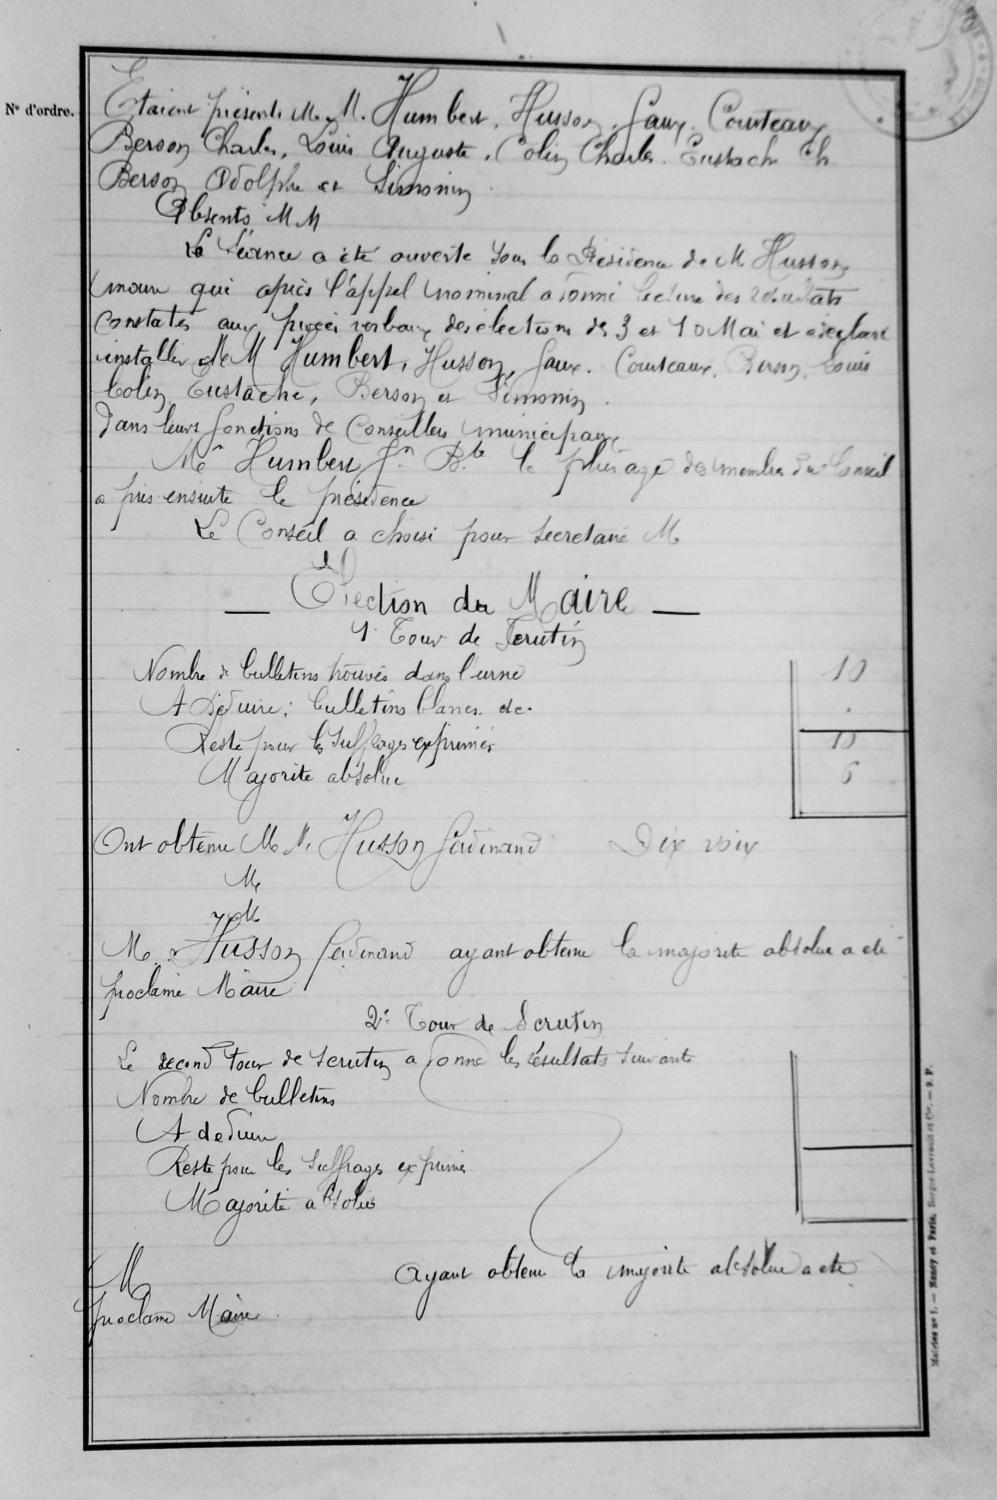 N° d'ordre.
Etaient présents M. M. Humbert, Husson, Gaux, Courteaux
Berson Charles, Louis Auguste, Colin Charles, Eustache Ch
Berson Adolphe et Simonin.
Absents M M
La Séance a été ouverte sous la Présidence de M Husson,
maire qui après l'appel nominal a donné lecture des résultats
constatés aux procès verbaux des élections des 3 et 10 Mai et a déclaré
installer M M Humbert, Husson, Gaux, Courteaux, Berson, Louis
Colin, Eustache, Berson et Simonin.
Dans leurs fonctions de Conseillers municipaux
Mr Humbert Jn Bte le plus agé des membres du Conseil
a pris ensuite la présidence
Le Conseil a choisi pour secretaire M
— Election du Maire —
1. Tour de Scrutin
Nombre de bulletins trouvés dans l'urne 10
A Déduire; bulletins blancs etc.
Reste pour les suffrages exprimés 10
Majorité absolue 6
Ont obtenu M M. Husson Ferdinand Dix voix
M
M
M. Husson Ferdinand ayant obtenu la majorité absolue a été
proclamé Maire
2e Tour de Scrutin
Le second tour de scrutin a donné les résultats suivants
Nombre de bulletins
A deduire
Reste pour les suffrages exprimés
Majorité absolue
M ayant obtenu la majorité absolue a été
proclamé Maire
Mairies n° 1. — Nancy et Paris, Berger-Levrault et Cie. — 9. P.